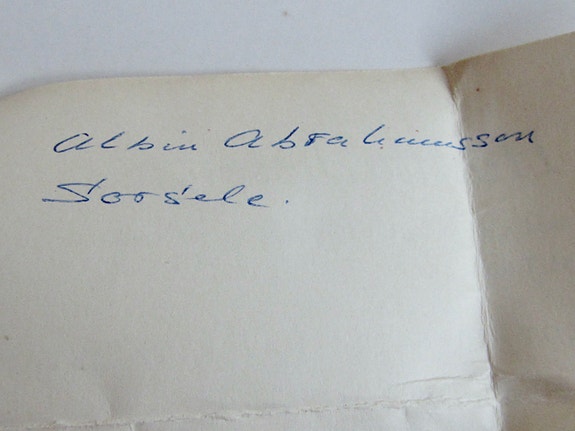 Albin Abrahamsson
Sorsele.